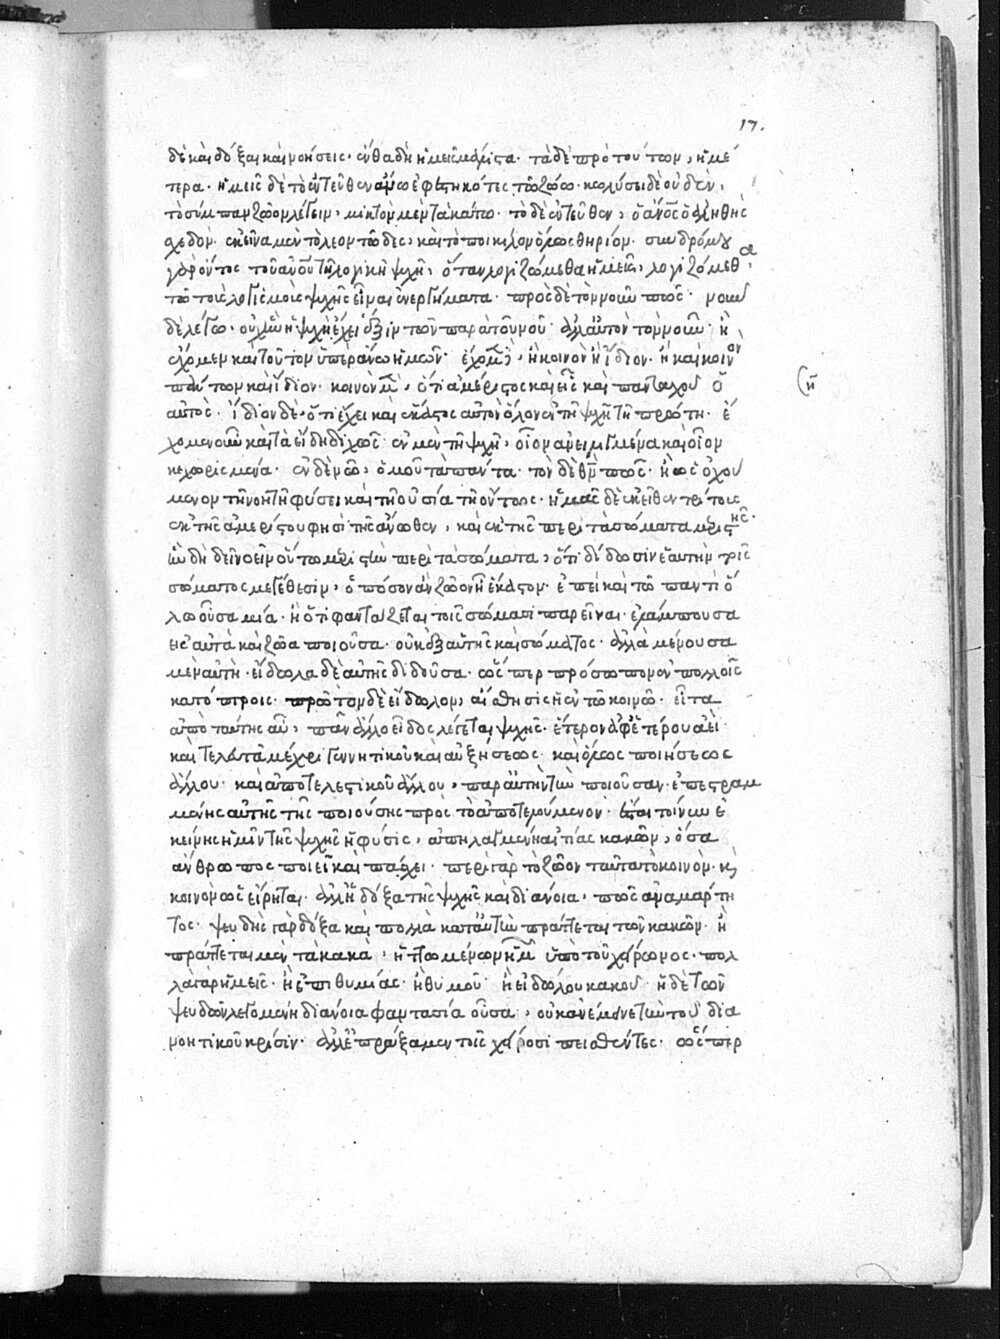 17.
δὲ καὶ δόξαι καὶ νοήσεις· ἔνθα δὴ ἡμεῖς μάλιστα· τὰ δὲ πρὸ τούτων, ἡμέ
τερα· ἡμεῖς δὲ τὸ ἐντεῦθεν ἄνω ἐφεστηκότες τῷ ζώῳ· κωλύσει δὲ οὐδὲν,
τὸ σύμπαν ζῷον λέγειν, μικτὸν μὲν τὰ κάτω· τὸ δὲ ἐντεῦθεν, ὁ ἄνος ὁ ἀληθὴς
σχεδόν· ἐκεῖνα μὲν τὸ λεοντῶδες, καὶ τὸ ποικίλον ὅλως θηρίον· συνδρόμου
γὰρ ὄντος τοῦ ἀνου τῇ λογικῇ ψυχῇ, ὅταν λογιζώμεθα ἡμεῖς, λογιζόμεθα
τῷ τοὺς λογισμοὺς ψυχῆς εἶναι ἐνεργήματα· πρὸς δὲ τὸν νοῦν πῶς· νοῦν
δὲ λέγω· οὐχ ἣν ἡ ψυχὴ ἔχει ἕξιν τῶν παρὰ τοῦ νοῦ· ἀλλ' αὐτὸν τὸν νοῦν· ἢ
ἔχομεν καὶ τοῦτον ὑπεράνω ἡμῶν· ἔχομεν δὲ, ἢ κοινὸν ἢ ἴδιον· ἢ καὶ κοινὸν
πάντων καὶ ἴδιον· κοινὸν μὲν, ὅτι ἀμέριστος καὶ εἷς καὶ πανταχοῦ ὁ
αὐτὸς· ἴδιον δὲ, ὅτι ἔχει καὶ ἕκαστος αὐτὸν ὅλον ἐν τῇ ψυχῇ τῇ πρώτῃ· ἔ
χομεν οὖν καὶ τὰ εἴδη διχῶς· ἐν μὲν τῇ ψυχῇ, οἷον ἀνειλιγμένα καὶ οἷον
κεχωρισμένα· ἐν δὲ νῷ, ὁμοῦ τὰ πάντα· τὸν δὲ θν πῶς· ἢ ὡς ἐποχού
μενον τῇ νοητῇ φύσει καὶ τῇ οὐσίᾳ τῇ ὄντως· ἡμᾶς δὲ ἐκεῖθεν τρίτους
ἐκ τῆς ἀμερίστου φησὶ τῆς ἄνωθεν, καὶ ἐκ τῆς περὶ τὰ σώματα μεριστῆς·
ἣν δὴ δεῖ νοεῖν οὕτω μεριστὴν περὶ τὰ σώματα, ὅτι δίδωσιν ἑαυτὴν τοῖς
σώματος μεγέθεσιν, ὁπόσον ἂν ζῷον ᾖ ἕκαστον· ἐπεὶ καὶ τῷ παντὶ ὅ
λῳ οὖσα μία· ἢ ὅτι φαντάζεται τοῖς σώμασι παρεῖναι· ἐλλάμπουσα
εἰς αὐτὰ καὶ ζῷα ποιοῦσα· οὐκ ἐξ αὑτῆς καὶ σώματος· ἀλλὰ μένουσα
μὲν αὐτὴ· εἴδωλα δὲ αὐτῆς διδοῦσα· ὥσπερ πρόσωπον ἐν πολλοῖς
κατόπτροις· πρῶτον δὲ εἴδωλον, αἴσθησις ἡ ἐν τῷ κοινῷ· εἶτα
ἀπὸ ταύτης αὖ, πᾶν ἄλλο εἶδος λέγεται ψυχῆς· ἕτερον ἀφ' ἑτέρου ἀεὶ·
καὶ τελευτᾷ μέχρι γεννητικοῦ καὶ αὐξήσεως· καὶ ὅλως ποιήσεως
ἄλλου· καὶ ἀποτελεστικοῦ ἄλλου, παρ' αὐτὴν τὴν ποιοῦσαν· ἐπεστραμ
μένης αὐτῆς τῆς ποιούσης πρὸς τὸ ἀποτελούμενον· ἔσται τοίνυν ἐ
κείνης ἡμῖν τῆς ψυχῆς ἡ φύσις, ἀπηλλαγμένη αἰτίας κακῶν, ὅσα
ἄνθρωπος ποιεῖ καὶ πάσχει· περὶ γὰρ τὸ ζῷον ταῦτα τὸ κοινὸν· κ
κοινὸν ὡς εἴρηται· ἀλλ' εἰ δόξα τῆς ψυχῆς καὶ διάνοια, πῶς ἀναμάρτη
τος· ψευδὴς γὰρ δόξα καὶ πολλὰ κατ' αὐτὴν πράττεται τῶν κακῶν· ἢ
πράττεται μὲν τὰ κακὰ, ἡττωμένων ἡμῶν ὑπὸ τοῦ χείρονος· πολ
λὰ γὰρ ἡμεῖς· ἢ ἐπιθυμίας· ἢ θυμοῦ· ἢ εἰδώλου κακοῦ· ἡ δὲ τῶν
ψευδῶν λεγομένη διάνοια φαντασία οὖσα, οὐκ ἀνέμεινε τὴν τοῦ δια
νοητικοῦ κρίσιν· ἀλλ' ἐπράξαμεν τοῖς χείροσι πεισθέντες· ὥσπερ